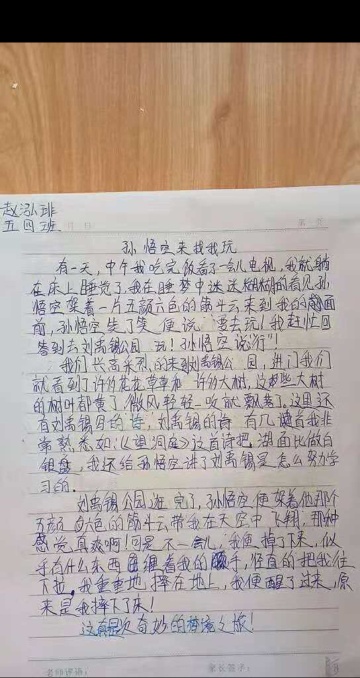 赵泓琲
五四班
孙悟空来找我玩
有一天，中午我吃完饭看了一会儿电视，我就躺
在床上睡觉了，我在睡梦中迷迷糊糊的看见孙
悟空驾着一片五颜六色的筋斗云来到我的面
前，孙悟空笑了笑便说：“要去玩！”我赶忙回
答到去刘禹锡公园玩！孙悟空说行”！
我们兴高采烈的来到刘禹锡公园，进门我们
就看到了许许多多花花草草和许多大树，这些大树
的树叶都黄了，微风轻轻一吹就飘落了，这里还
有刘禹锡写的诗，刘禹锡的诗有几首我非
常熟悉如：《望洞庭》这首诗把湖面比做白
银盘，我还给孙悟空讲了刘禹锡是怎么努力学
习的。
刘禹锡公园逛完了，孙悟空便驾着他那个
五颜六色的筋斗云带我在天空中飞翔，那种
感觉真爽啊！可是不一会儿，我便掉了下来，似
乎有什么东西缠着我的手，径直的把我往
下拉，我重重地摔在地上，我便醒了过来，原
来是我摔下了床！
这真是次奇妙的梦境之旅！